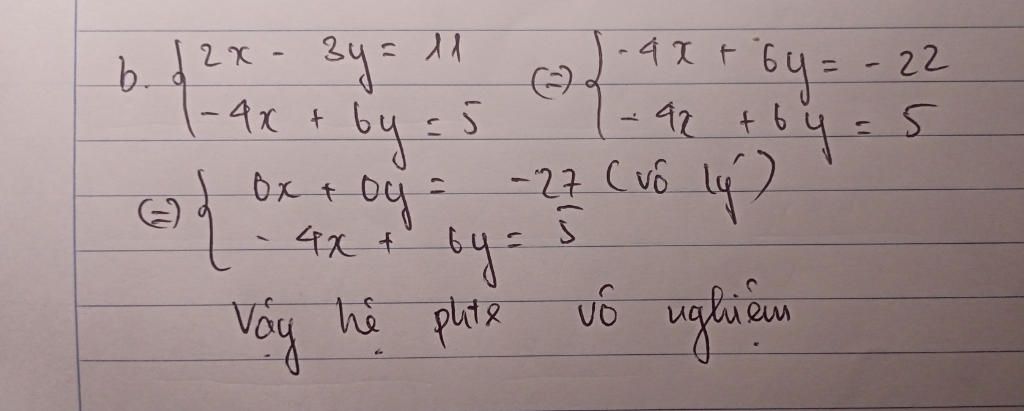 b. { 2x - 3y = 11 (=) { -4x + 6y = -22
-4x + 6y = 5 -4x + 6y = 5
(=) { 0x + 0y = -27 (vô lý)
-4x + 6y = 5
Vậy hệ phtr vô nghiệm